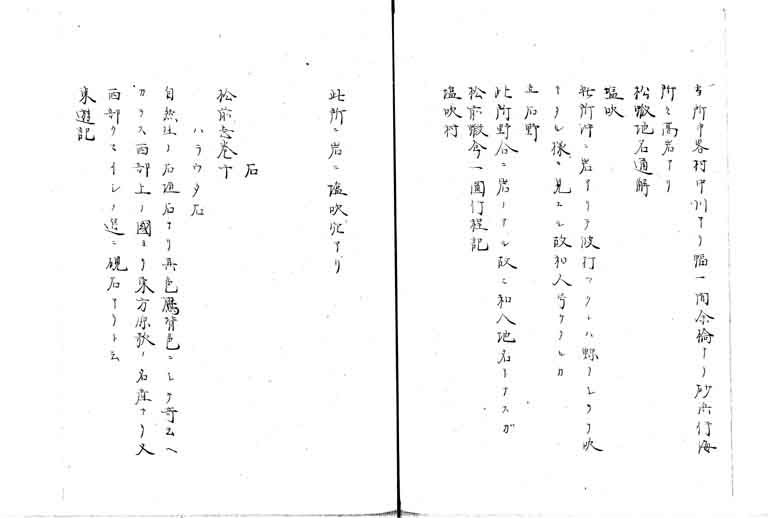 此所ヨリ畧村中川アリ幅一間余橋アリ砂浜行海
所々高岩アリ
松前地名通解
塩吹
此所沖ニ岩アリテ波打アクレハ煙ノコトク吹
上ル様ニ見エル故和人号ケタルカ
立石野
此所野合ニ岩ノアル故ニ和人地名トナスカ
松前蝦夷今一圓行程記
塩吹村
此所ニ岩ニ塩吹穴アリ
石
松前志巻十
ハラウタ石
自然生ノ石硯石ナリ其色鷹背色ニシテ奇云ヘ
カラス西部上ノ國ヨリ東方原歌ノ名産ナリ又
西部クマイシノ邊ニ硯石アリト云
東遊記